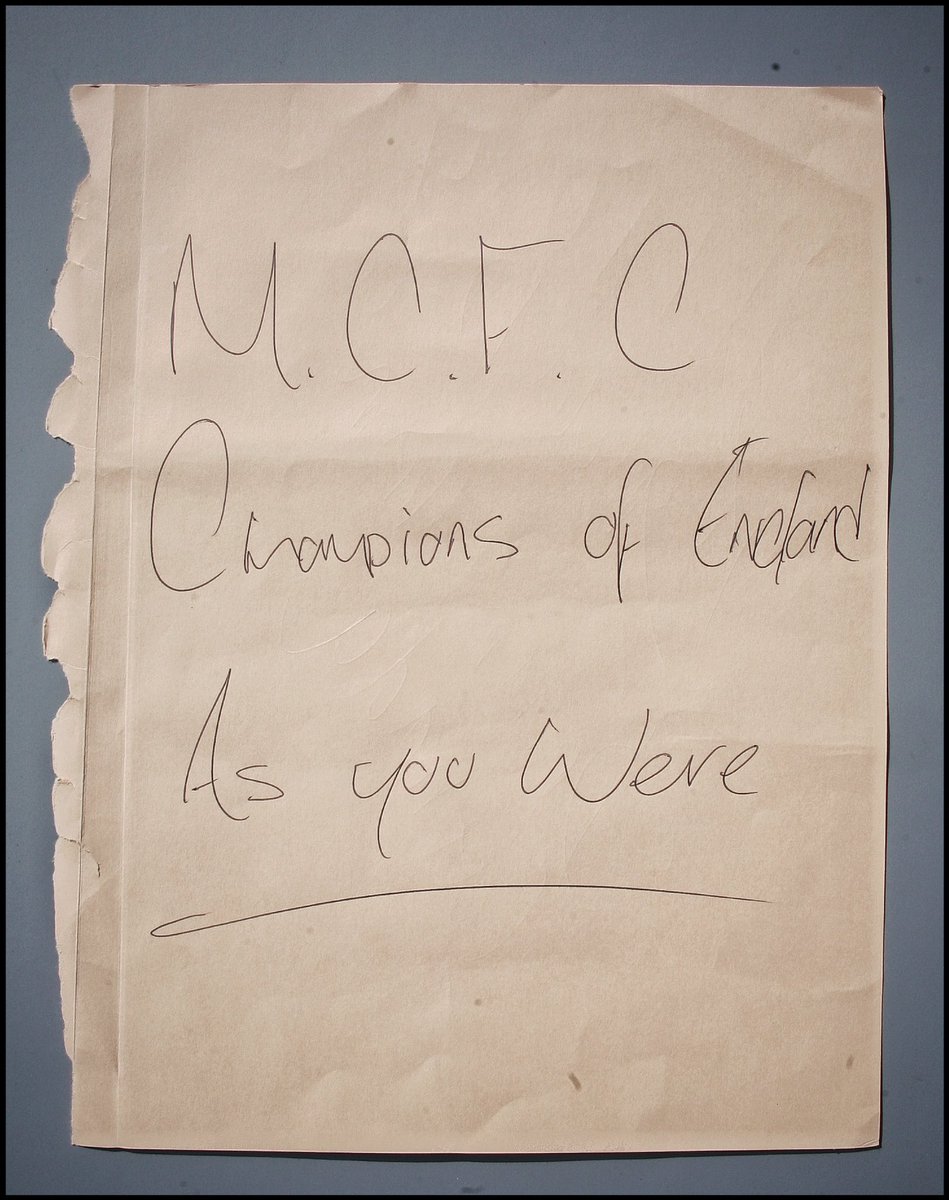 M.C.F.C
Champions of England
As you Were